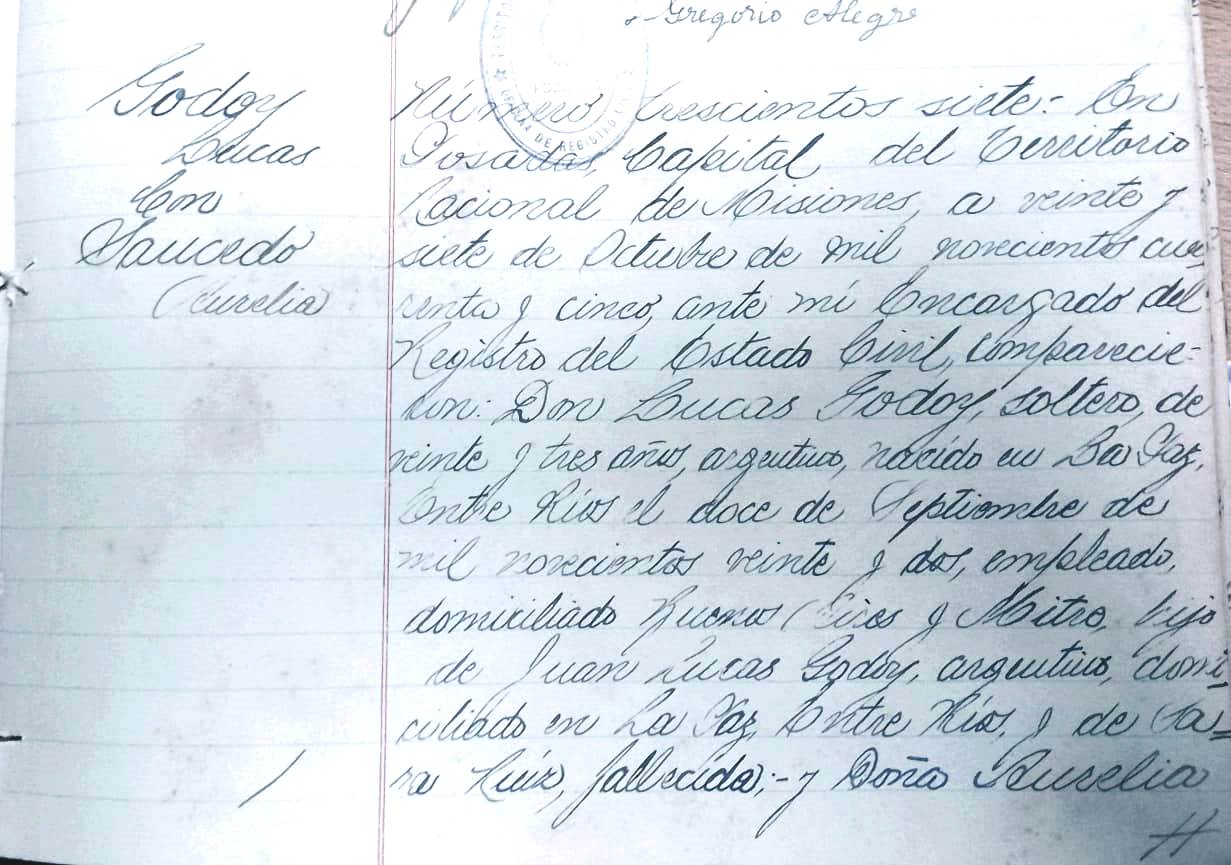 Gregorio Alegre
OFICINA DE REGISTRO
Godoy
Lucas
Con
Saucedo
Aurelia
Número trescientos siete:- En
Posadas, Capital del Territorio
Nacional de Misiones, a veinte y
siete de Octubre de mil novecientos cua-
renta y cinco, ante mí Encargado del
Registro del Estado Civil, comparecie-
ron: Don Lucas Godoy, soltero, de
veinte y tres años, argentino, nacido en La Paz,
Entre Ríos el doce de Septiembre de
mil novecientos veinte y dos, empleado,
domiciliado Buenos Aires y Mitre, hijo
de Juan Lucas Godoy, argentino, domi-
ciliado en La Paz, Entre Ríos, y de Sa-
ra Ruíz, fallecida;- y Doña Aurelia